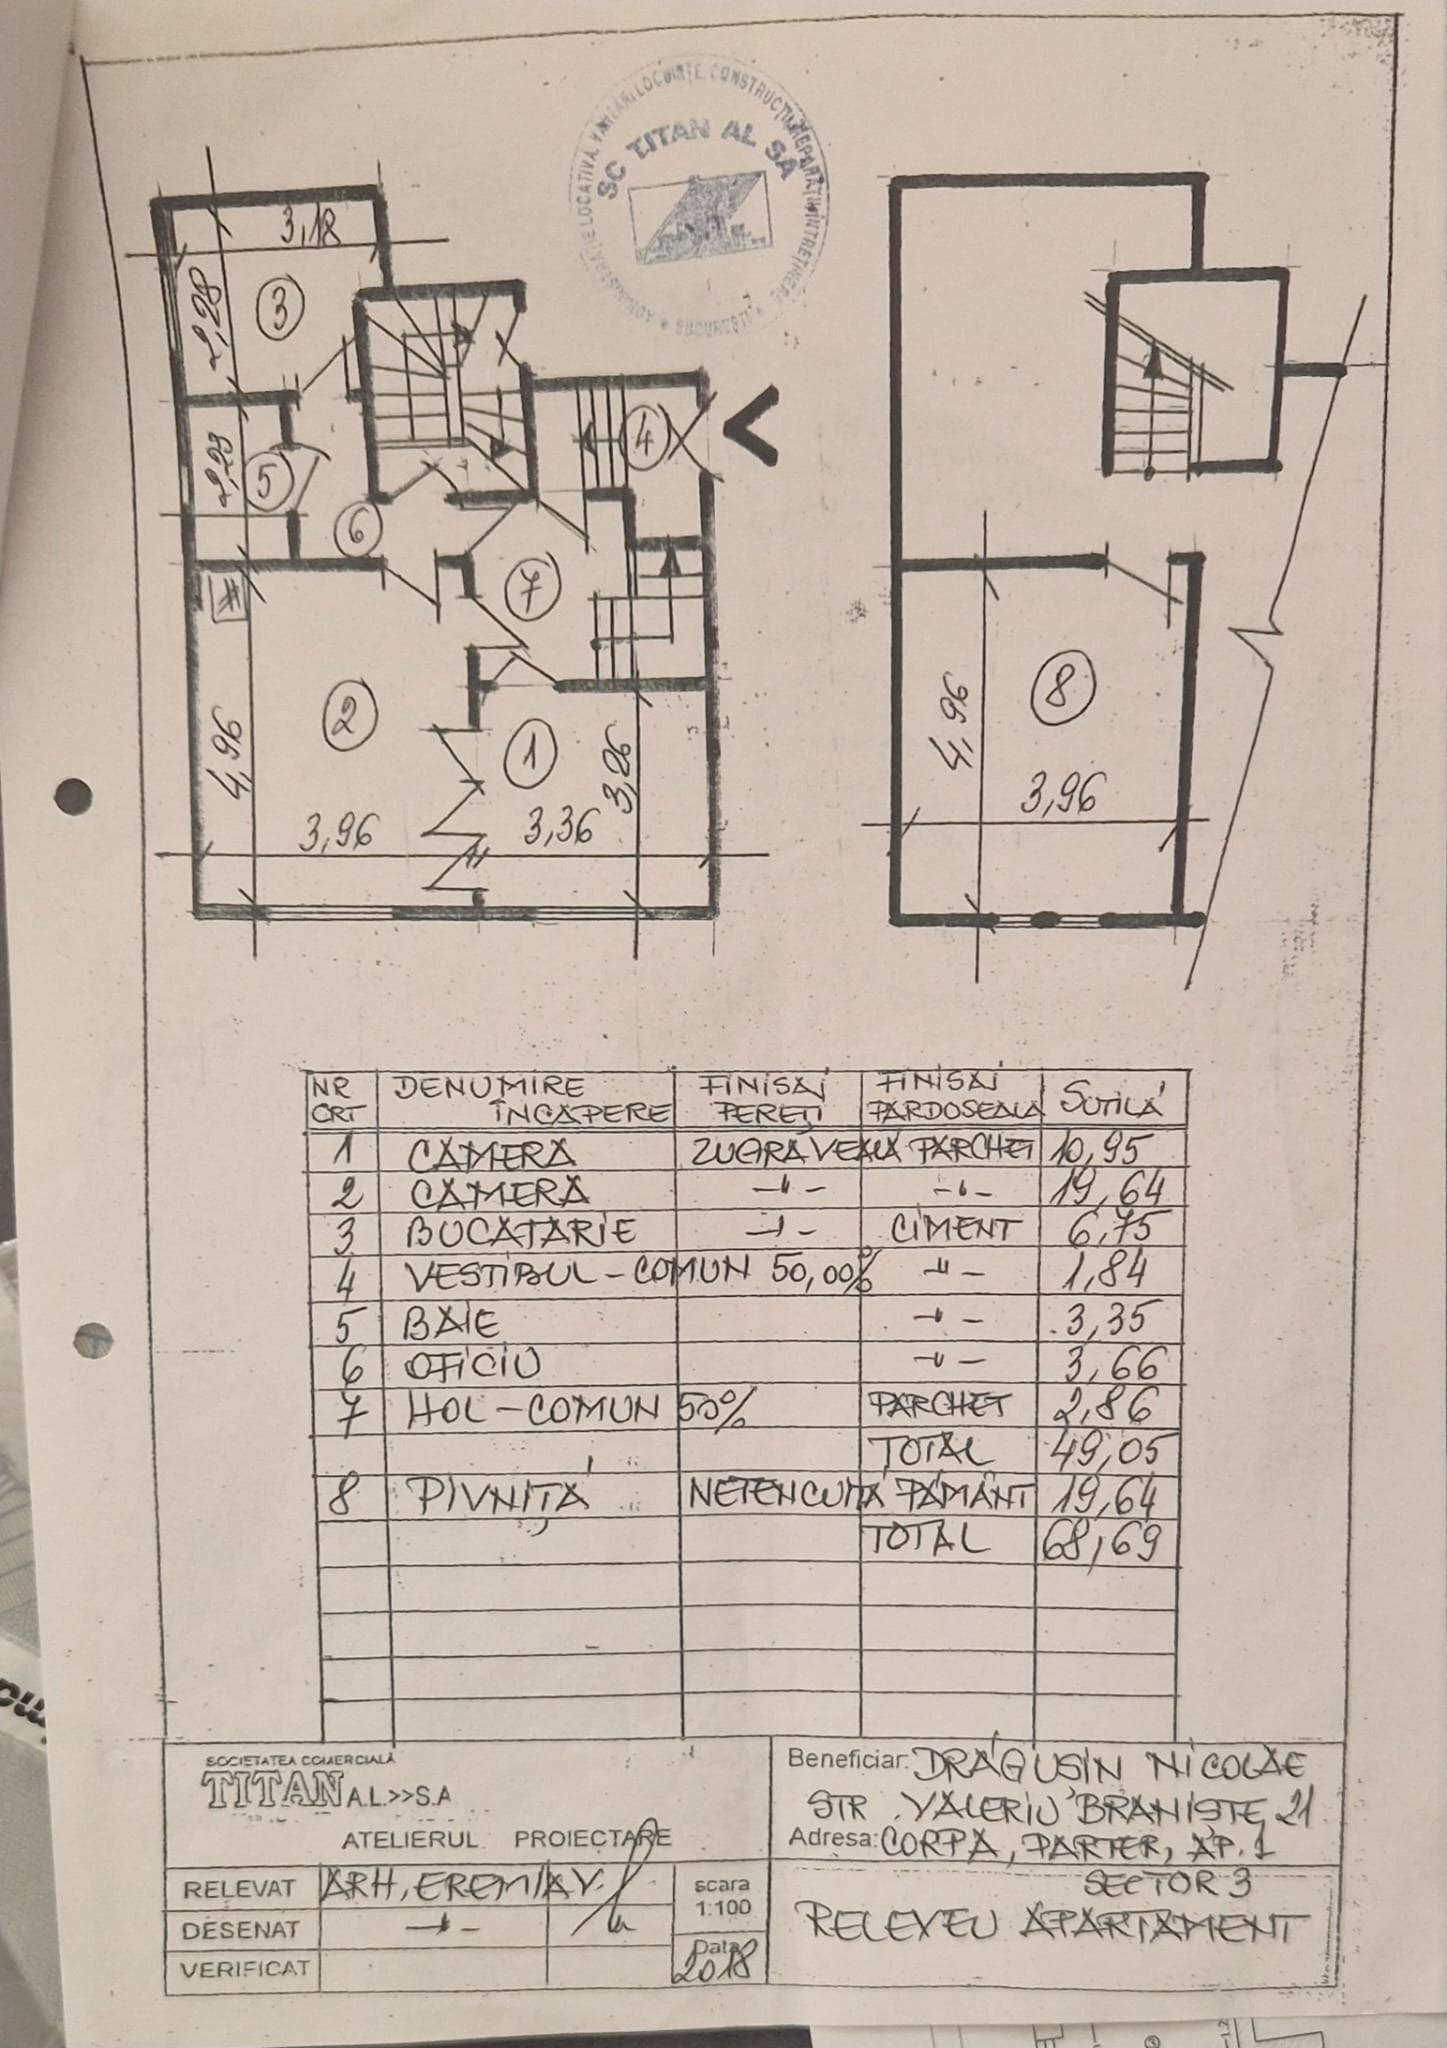 SC TITAN AL SA
BUCUREȘTI
3,18
2,28
3
4
2,23
5
6
7
2
4,96
1
3,26
3,96
3,36
8
4,96
3,96
NR CRT DENUMIRE ÎNCAPERE FINISAJ PEREȚI FINISAJ PARDOSEALA SUTILĂ
1 CAMERA ZUGRAVEALĂ PARCHET 10,95
2 CAMERA -"- -"- 19,64
3 BUCATARIE -"- CIMENT 6,75
4 VESTIBUL - COMUN 50,00% -"- 1,84
5 BAIE -"- 3,35
6 OFICIU -"- 3,66
7 HOL - COMUN 50% PARCHET 2,86
TOTAL 49,05
8 PIVNIȚĂ NETENCUITĂ PĂMÂNT 19,64
TOTAL 68,69
SOCIETATEA COMERCIALĂ
TITAN A.L.>>S.A
ATELIERUL PROIECTARE
RELEVAT ARH. EREMIA V.
DESENAT -"-
VERIFICAT
scara
1:100
Data
2018
Beneficiar: DRĂGUȘIN NICOLAE
STR. VALERIU BRANIȘTE, 21
Adresa: CORP A, PARTER, AP. 1
SECTOR 3
RELEVEU APARTAMENT